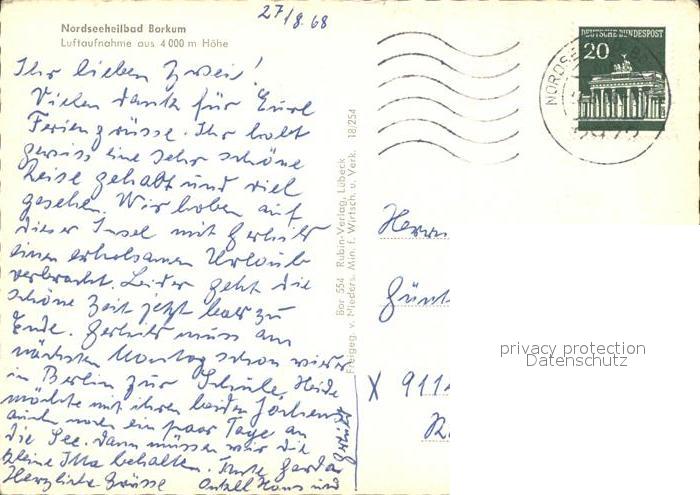 27/8.68
Nordseeheilbad Borkum
Luftaufnahme aus 4 000 m Höhe
Ihr lieben Zwei!
Vielen Dank für Eure
Feriengrüsse. Ihr habt
gewiss eine sehr schöne
Reise gehabt und viel
gesehen. Wir haben auf
dieser Insel mit Gerhild
einen erholsamen Urlaub
verbracht. Leider geht die
schöne Zeit jetzt bald zu
Ende. Gerhild muss am
nächsten Montag schon wieder
in Berlin zur Schule. Heide
möchte mit ihren beiden
auch noch ein paar Tage an
die See. Dann müssen wir die
kleine behalten. Tante Gerda
Herzliche Grüsse Onkel Hans und
Gerhild
Bor 554 Rubin-Verlag, Lübeck 18/254
Freigeg. v. Nieders. Min. f. Wirtsch. u. Verk.
DEUTSCHE BUNDESPOST
20
NORDSE
Herrn
Günt
X 911
privacy protection
Datenschutz